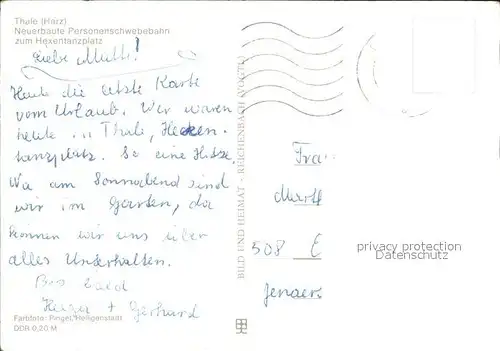 Thale (Harz)
Neuerbaute Personenschwebebahn
zum Hexentanzplatz
Liebe Mutti!
Heute die letzte Karte
vom Urlaub. Wir waren
heute in Thale, Hexen-
tanzplatz. So eine Hitze.
Na am Sonnabend sind
wir im Garten, da
können wir uns über
alles Unterhalten.
Bis bald
+ Gerhard
Farbfoto: Pingel, Heiligenstadt
DDR 0,20 M
BILD UND HEIMAT · REICHENBACH (VOGTL)
Fra
Marth
508 E
Jenaers
privacy protection
Datenschutz